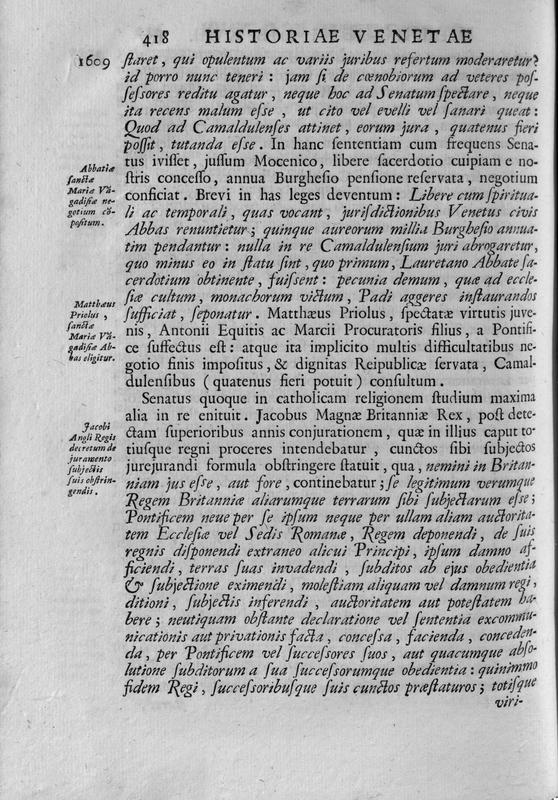 418 HISTORIAE VENETAE
1609 ſtaret, qui opulentum ac variis juribus refertum moderaretur?
id porro nunc teneri: jam ſi de cœnobiorum ad veteres poſ-
ſeſſores reditu agatur, neque hoc ad Senatum ſpectare, neque
ita recens malum eſſe, ut cito vel evelli vel ſanari queat:
Quod ad Camaldulenſes attinet, eorum jura, quatenus fieri
poſſit, tutanda eſſe. In hanc ſententiam cum frequens Sena-
tus iviſſet, juſſum Mocenico, libere ſacerdotio cuipiam e no-
ſtris conceſſo, annua Burgheſio penſione reſervata, negotium
conficiat. Brevi in has leges deventum: Libere cum ſpiritua-
li ac temporali, quas vocant, juriſdictionibus Venetus civis
Abbas renuntietur; quinque aureorum millia Burgheſio annua-
tim pendantur: nulla in re Camaldulenſium juri abrogaretur,
quo minus eo in ſtatu ſint, quo primum, Lauretano Abbate ſa-
cerdotium obtinente, fuiſſent: pecunia demum, quæ ad eccle-
ſiæ cultum, monachorum victum, Padi aggeres inſtaurandos
ſufficiat, ſeponatur. Matthæus Priolus, ſpectatæ virtutis juve-
nis, Antonii Equitis ac Marcii Procuratoris filius, a Pontifi-
ce ſuffectus eſt: atque ita implicito multis difficultatibus ne-
gotio finis impoſitus, & dignitas Reipublicæ ſervata, Camal-
dulenſibus (quatenus fieri potuit) conſultum.
Senatus quoque in catholicam religionem ſtudium maxima
alia in re enituit. Jacobus Magnæ Britanniæ Rex, poſt dete-
ctam ſuperioribus annis conjurationem, quæ in illius caput to-
tiuſque regni proceres intendebatur, cunctos ſibi ſubjectos
jurejurandi formula obſtringere ſtatuit, qua, nemini in Britan-
niam jus eſſe, aut fore, continebatur; ſe legitimum verumque
Regem Britanniæ aliarumque terrarum ſibi ſubjectarum eſſe;
Pontificem neve per ſe ipſum neque per ullam aliam auctorita-
tem Eccleſiæ vel Sedis Romanæ, Regem deponendi, de ſuis
regnis diſponendi extraneo alicui Principi, ipſum damno af-
ficiendi, terras ſuas invadendi, ſubditos ab ejus obedientia
& ſubjectione eximendi, moleſtiam aliquam vel damnum regi,
ditioni, ſubjectis inferendi, auctoritatem aut poteſtatem ha-
bere; neutiquam obſtante declaratione vel ſententia excommu-
nicationis aut privationis facta, conceſſa, facienda, conceden-
da, per Pontificem vel ſucceſſores ſuos, aut quacumque abſo-
lutione ſubditorum a ſua ſucceſſorumque obedientia: quinimmo
fidem Regi, ſucceſſoribuſque ſuis cunctos præſtaturos; totiſque
viri-
Abbatiæ
ſanctæ
Mariæ Vã-
gadiſiæ ne-
gotium cõ-
poſitum.
Matthæus
Priolus,
ſanctæ
Mariæ Vã-
gadiſiæ Ab-
bas eligitur.
Jacobi
Angli Regis
decretum de
juramento
ſubjectis
ſuis obſtrin-
gendis.